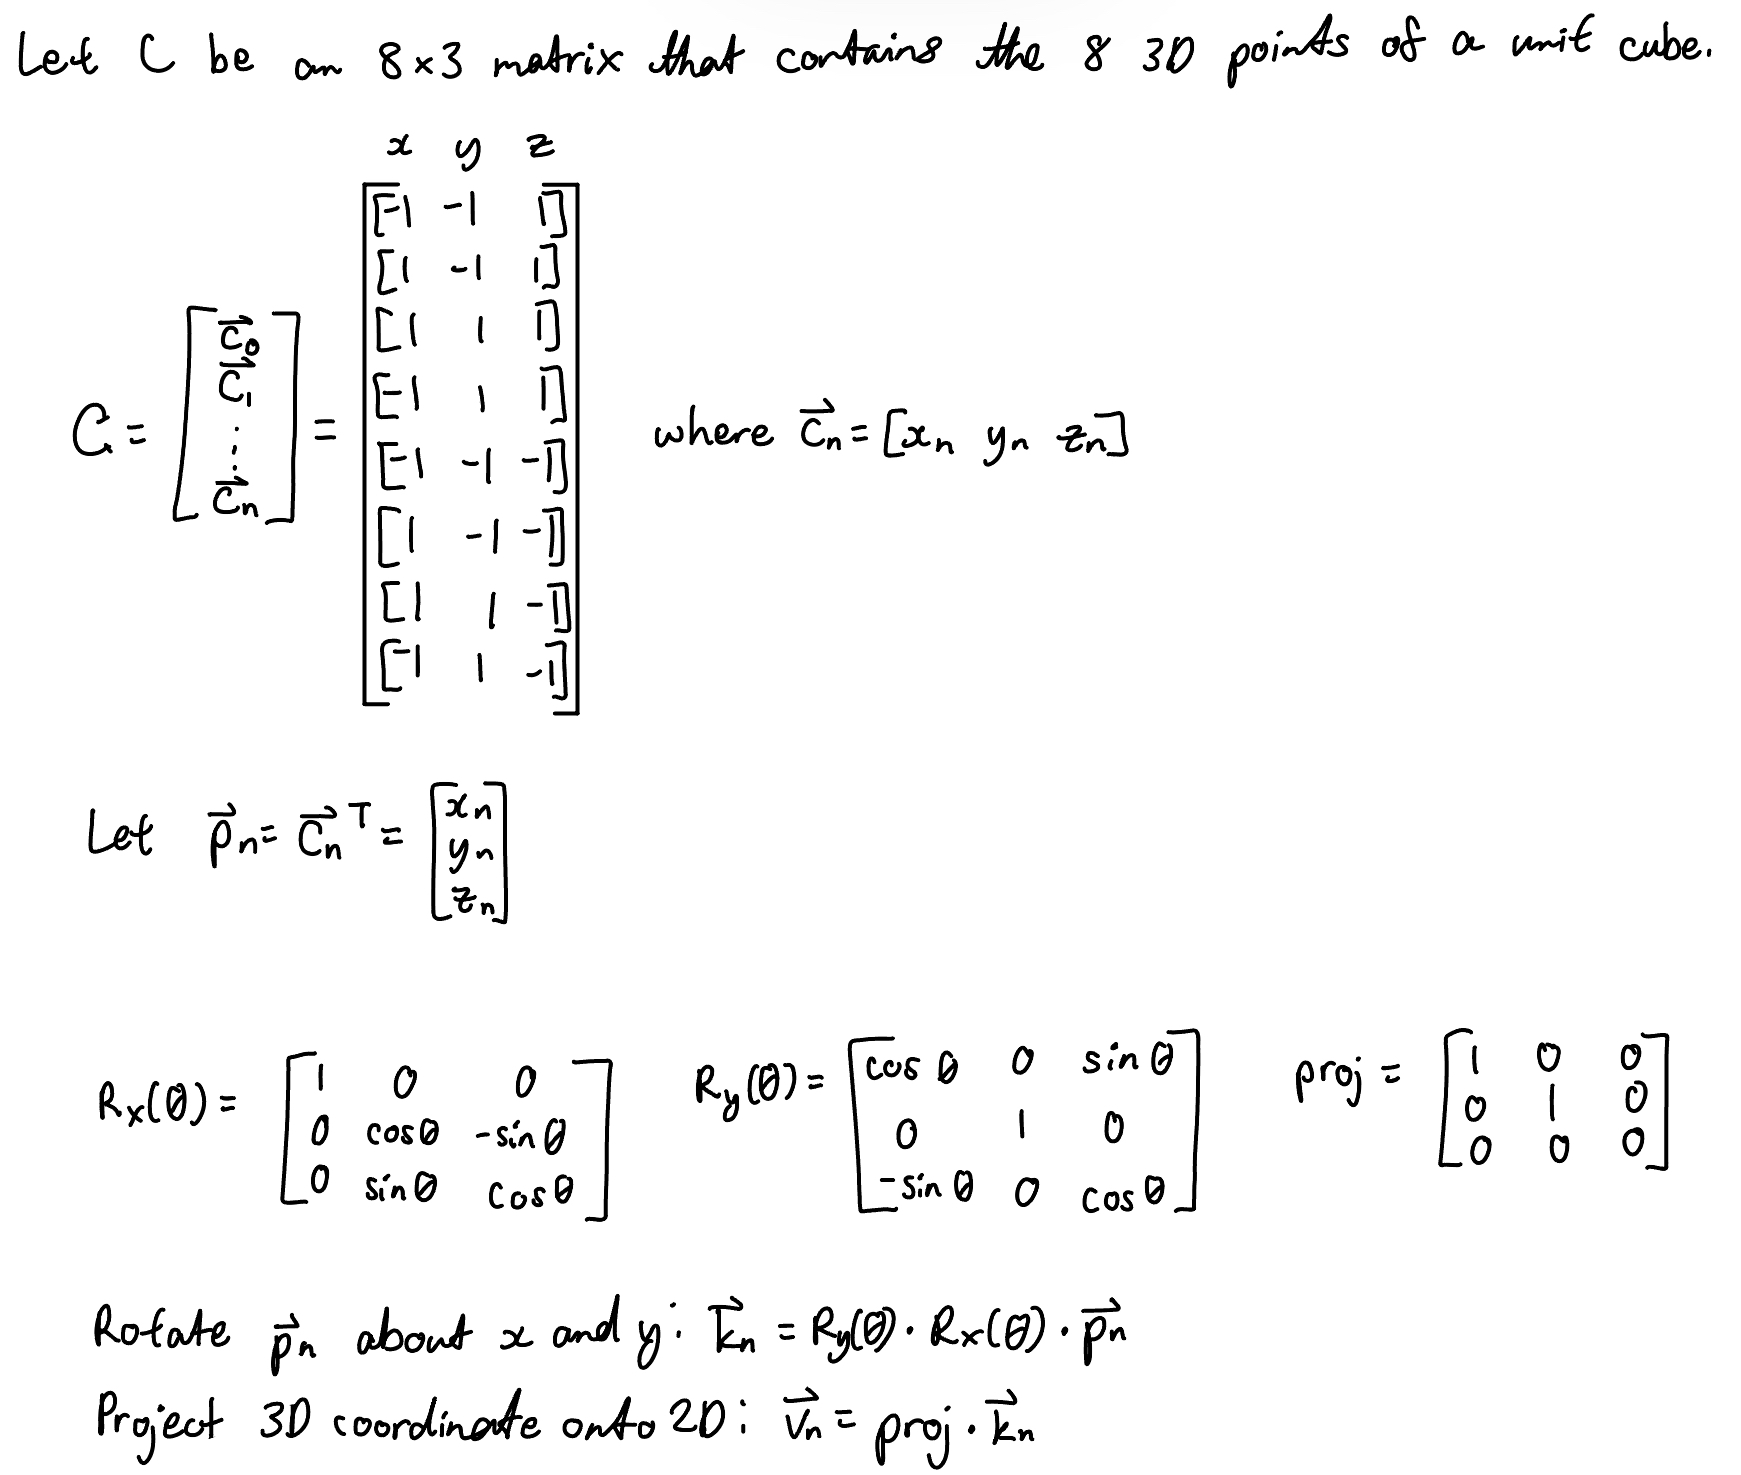 Let C be an 8×3 matrix that contains the 8 3D points of a unit cube.
x y z
[-1 -1 1]
[1 -1 1]
[1 1 1]
[-1 1 1]
C = [c⃗₀ c⃗₁ ⋮ c⃗n] = where c⃗n = [xn yn zn]
[-1 -1 -1]
[1 -1 -1]
[1 1 -1]
[-1 1 -1]
Let p⃗n = c⃗nᵀ = [xn yn zn]
Rx(θ) = [1 0 0; 0 cosθ -sinθ; 0 sinθ cosθ] Ry(θ) = [cosθ 0 sinθ; 0 1 0; -sinθ 0 cosθ] proj = [1 0 0; 0 1 0; 0 0 0]
Rotate p⃗n about x and y: k⃗n = Ry(θ) · Rx(θ) · p⃗n
Project 3D coordinate onto 2D: v⃗n = proj · k⃗n